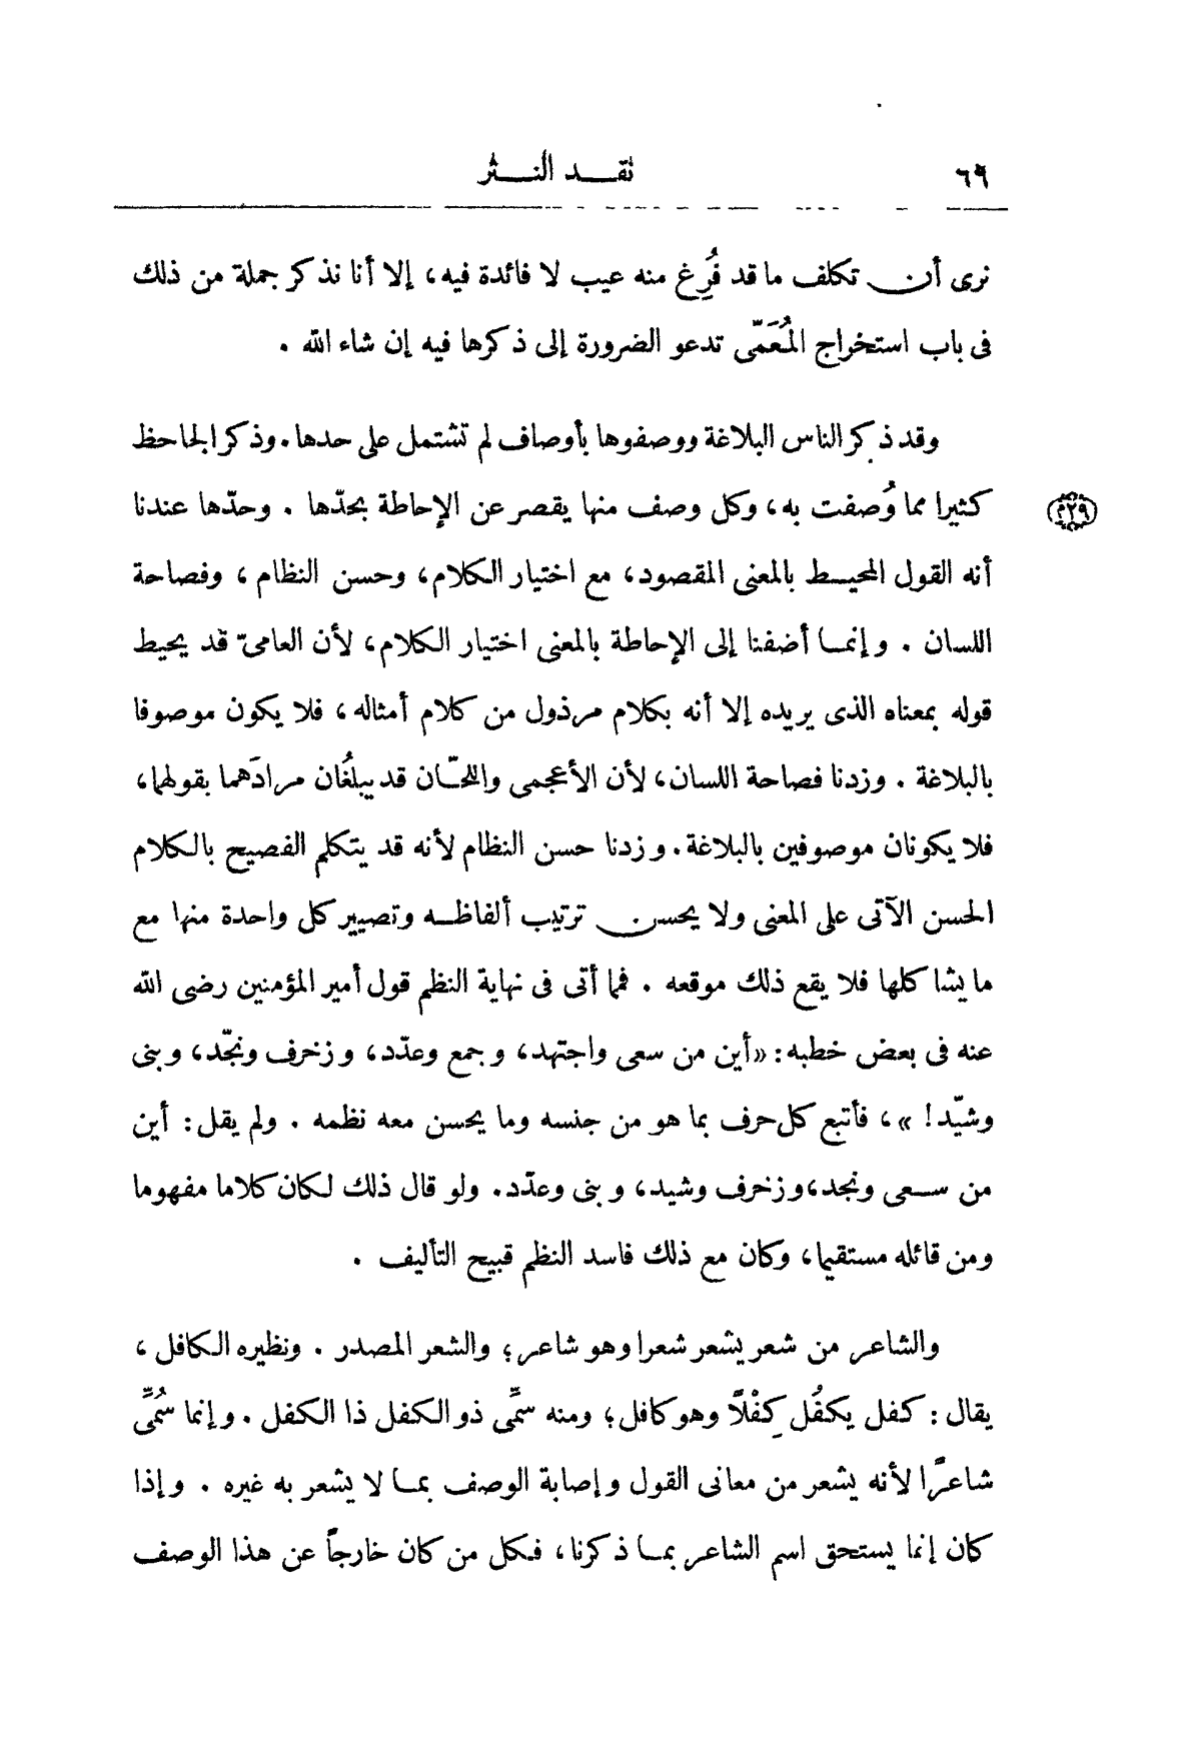 ٦٩ نقـــد النـــثر
نرى أن تكلف ما قد فُرِغ منه عيب لا فائدة فيه، إلا أنا نذكر جملة من ذلك
فى باب استخراج المُعَمّى تدعو الضرورة إلى ذكرها فيه إن شاء الله .
وقد ذكر الناس البلاغة ووصفوها بأوصاف لم تشتمل على حدها. وذكر الجاحظ
كثيرا مما وُصفت به، وكل وصف منها يقصر عن الإحاطة بحدّها . وحدّها عندنا
أنه القول المحيــط بالمعنى المقصود، مع اختيار الكلام، وحسن النظام ، وفصاحة
اللسان . وإنمــا أضفنا إلى الإحاطة بالمعنى اختيار الكلام، لأن العامىّ قد يحيط
قوله بمعناه الذى يريده إلا أنه بكلام مرذول من كلام أمثاله، فلا يكون موصوفا
بالبلاغة . وزدنا فصاحة اللسان، لأن الأعجمى واللحّــان قد يبلُغان مرادَهما بقولهما،
فلا يكونان موصوفين بالبلاغة. وزدنا حسن النظام لأنه قد يتكلم الفصيح بالكلام
الحسن الآتى على المعنى ولا يحسن ترتيب ألفاظــه وتصيير كل واحدة منها مع
ما يشاكلها فلا يقع ذلك موقعه . فما أتى فى نهاية النظم قول أمير المؤمنين رضى الله
عنه فى بعض خطبه: «أين من سعى واجتهد، وجمع وعدّد، وزخرف ونجّد، وبنى
وشيّد! »، فأتبع كل حرف بما هو من جنسه وما يحسن معه نظمه . ولم يقل: أين
من ســعى ونجد، وزخرف وشيد، وبنى وعدّد. ولو قال ذلك لكان كلاما مفهوما
ومن قائله مستقيما، وكان مع ذلك فاسد النظم قبيح التأليف .
والشاعر من شعر يشعر شعرا وهو شاعر؛ والشعر المصدر . ونظيره الكافل ،
يقال : كفل يكفُل كِفْلاً وهو كافل؛ ومنه سمِّى ذو الكفل ذا الكفل . وإنما سُمِّى
شاعرًا لأنه يشعر من معانى القول وإصابة الوصف بمــا لا يشعر به غيره . وإذا
كان إنما يستحق اسم الشاعر بمــا ذكرنا، فكل من كان خارجاً عن هذا الوصف